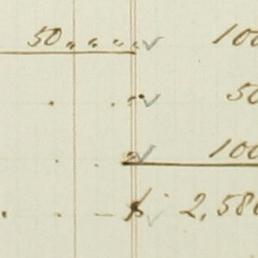 50 " " " " ✓ 100
" ✓ 50
" ✓ 100
$ ✓ 2,580